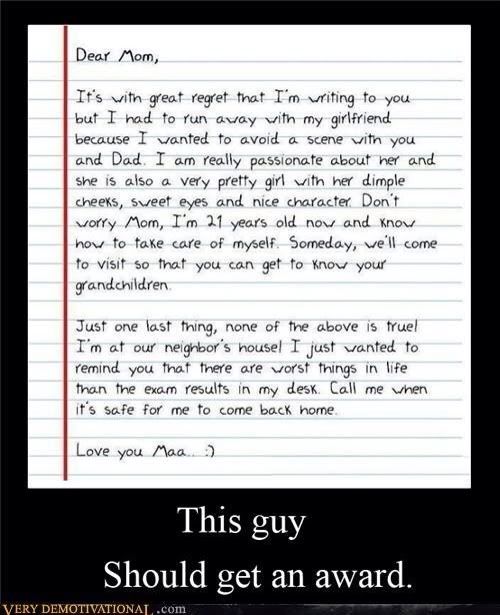 Dear Mom,
It's with great regret that I'm writing to you
but I had to run away with my girlfriend
because I wanted to avoid a scene with you
and Dad. I am really passionate about her and
she is also a very pretty girl with her dimple
cheeks, sweet eyes and nice character. Don't
worry Mom, I'm 21 years old now and know
how to take care of myself. Someday, we'll come
to visit so that you can get to know your
grandchildren.
Just one last thing, none of the above is true!
I'm at our neighbor's house! I just wanted to
remind you that there are worst things in life
than the exam results in my desk. Call me when
it's safe for me to come back home.
Love you Maa.. :)
This guy
Should get an award.
VERY DEMOTIVATIONAL.com